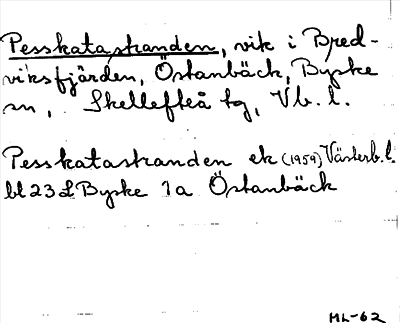 Pesskatastranden, vik i Bred-
viksfjärden, Östanbäck, Byske
sn, Skellefteå tg, Vb. l.
Pesskatastranden ek (1959) Västerb. l.
bl 23 L Byske 1a Östanbäck
ML-62